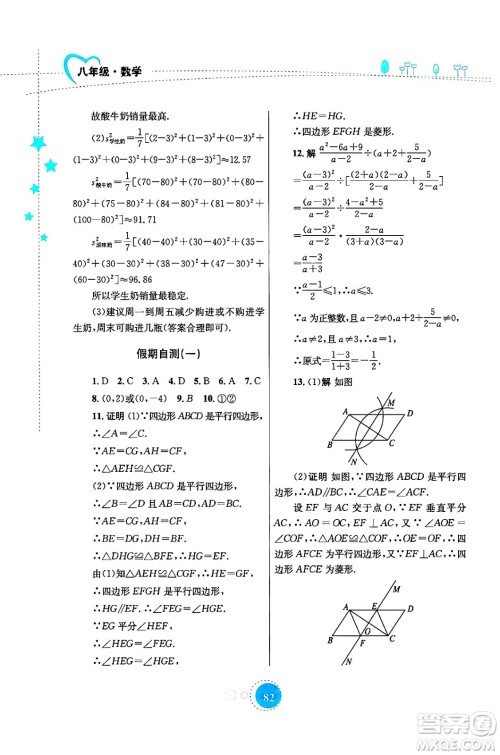 八年级·数学
故酸牛奶销量最高.
(2)s²学生奶=1/7[(2-3)²+(1-3)²+(0-3)²+
(1-3)²+(0-3)²+(9-3)²+(8-3)²]≈12.57
s²酸牛奶=1/7[(70-80)²+(70-80)²+(80-
80)²+(75-80)²+(84-80)²+(81-80)²+(100-
80)²]≈91.71
s²原味奶=1/7[(40-40)²+(30-40)²+(35-
40)²+(30-40)²+(38-40)²+(47-40)²+
(60-30)²]≈96.86
所以学生奶销量最稳定.
(3)建议周一到周五减少购进或不购进学
生奶,周末可购进几瓶(答案合理即可).
假期自测(一)
1. D 2. C 3. A 4. D 5. B 6. A 7. C
8. (0,2)或(0,-4) 9. B 10. ①②
11. 证明 (1)∵四边形ABCD是平行四边形,
∴∠A=∠C
∵AE=CG,AH=CF
∴△AEH≌△CGF
(2)∵四边形ABCD是平行四边形
∴∠B=∠D,AB=CD,AD=BC
∵AE=CG,AH=CF
∴BE=DG,DH=BF
∴△DHG≌△BFE ∴HG=EF
由(1)知△AEH≌△CGF ∴EH=GF
∴四边形EFGH是平行四边形
∴HG∥EF ∴∠HGE=∠FEG
∵EG平分∠HEF
∴∠HEG=∠FEG
∴∠HEG=∠HGE
∴HE=HG.
∴四边形EFGH是菱形.
12. 解 (a²-6a+9)/(a-2)÷(a+2+5/(2-a))
=(a-3)²/(a-2)÷[(a+2)(2-a)/(2-a)+5/(2-a)]
=(a-3)²/(a-2)÷(4-a²+5)/(2-a)
=(a-3)²/(a-2)·(2-a)/((3-a)(3+a))
=(a-3)/(a+3)
∵(a-1)/2≤1,∴a≤3
∵a为正整数,且a-2≠0,a+2+5/(2-a)≠0
∴a≠2,a≠3 ∴a=1
∴原式=(1-3)/(1+3)=-1/2
13. (1)解 如图
M
A
D
B
C
N
(2)证明 如图,∵四边形ABCD是平行四边形
∴AD∥BC ∴∠DAC=∠ACB
设EF与AC交于点O,∵EF垂直平分
AC ∴AO=OC,EF⊥AC ∵∠AOE=
∠COF ∴△AOE≌△COF ∴OE=OF ∴四
边形AFCE为平行四边形 ∵EF⊥AC ∴四边
形AFCE为菱形.
M
A
E
D
O
B
F
C
N
82
答案圈